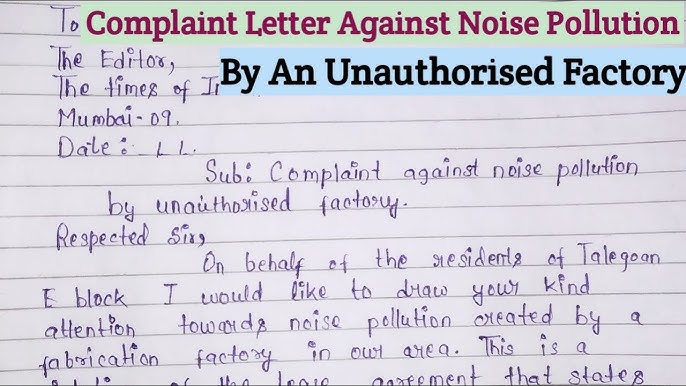 To
Complaint Letter Against Noise Pollution
By An Unauthorised Factory
The Editor,
The times of
Mumbai-09.
Date: L L.
Sub: Complaint against noise pollution
by unauthorised factory.
Respected Sir,
On behalf of the residents of Talegoan
E block I would like to draw your kind
attention towards noise pollution created by a
fabrication factory in our area. This is a
of the lease agreement that states